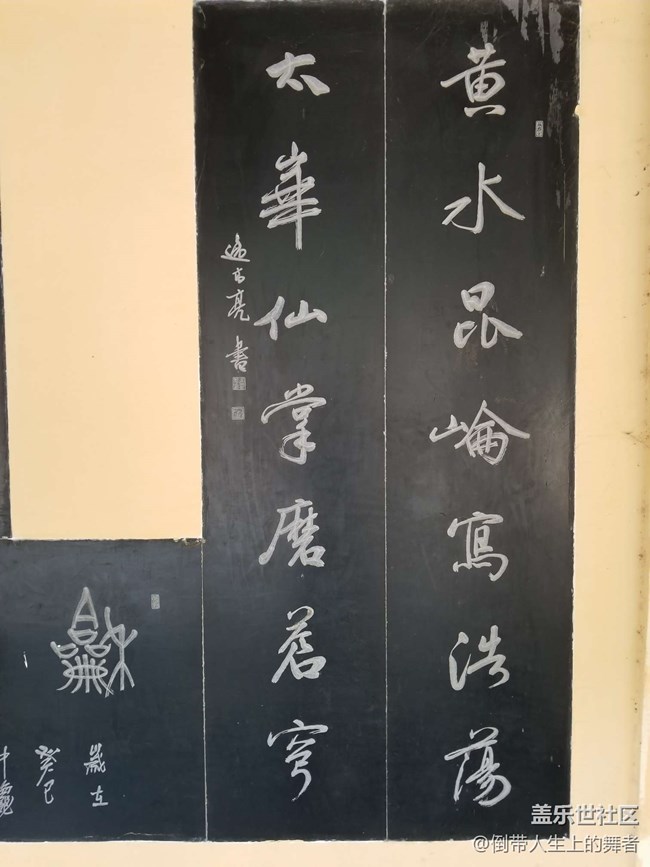 黄水昆崙寫浩蕩
太華仙掌磨苍穹
亮書
龢
歲在
癸巳
盖乐世社区
@倒带人生上的舞者